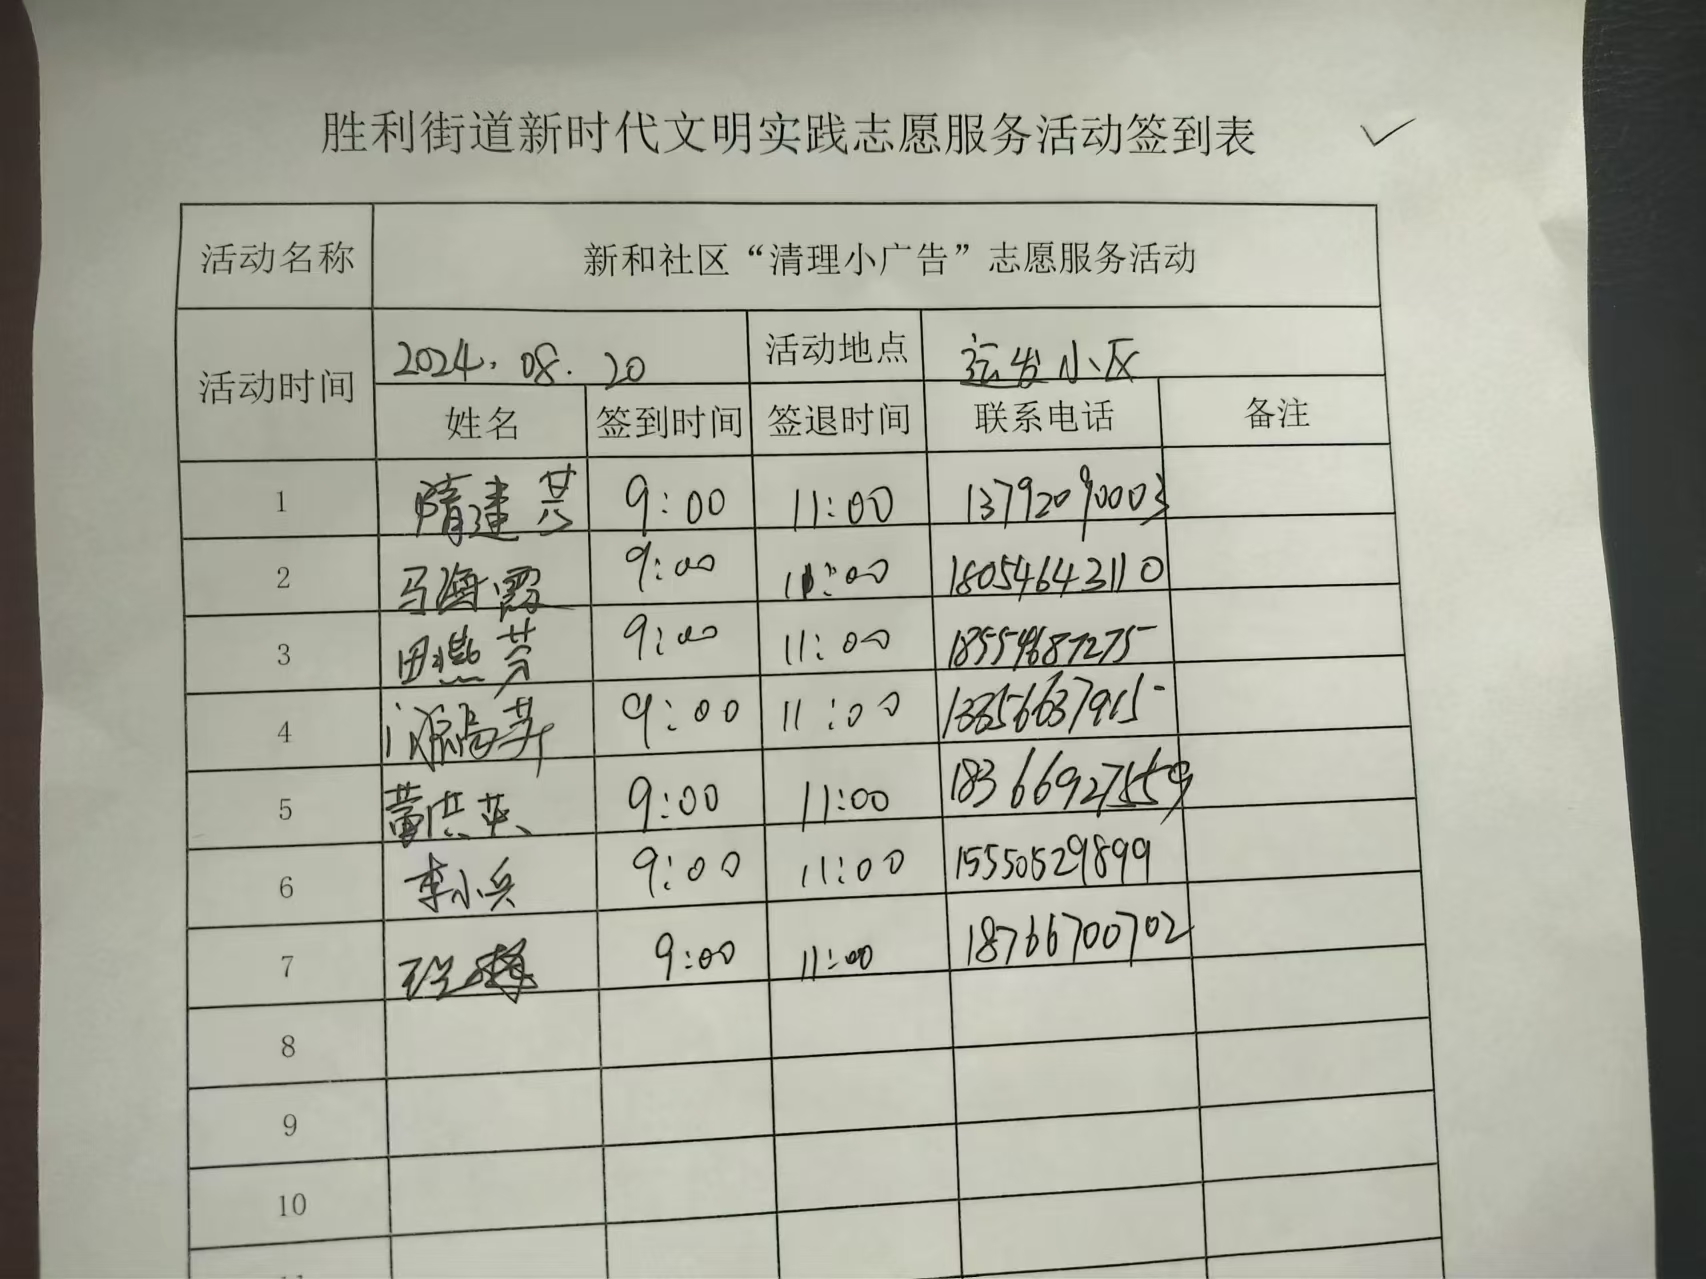 胜利街道新时代文明实践志愿服务活动签到表 ✓
活动名称 新和社区“清理小广告”志愿服务活动
活动时间 2024.08.20 活动地点 运发小区
姓名 签到时间 签退时间 联系电话 备注
1 隋建芬 9:00 11:00 13792090003
2 马海霞 9:00 11:00 18054643110
3 田燕芳 9:00 11:00 18554687275
4 9:00 11:00
5 董洪英 9:00 11:00 18366927559
6 李小兵 9:00 11:00 15550529899
7 9:00 11:00 18766700702
8
9
10